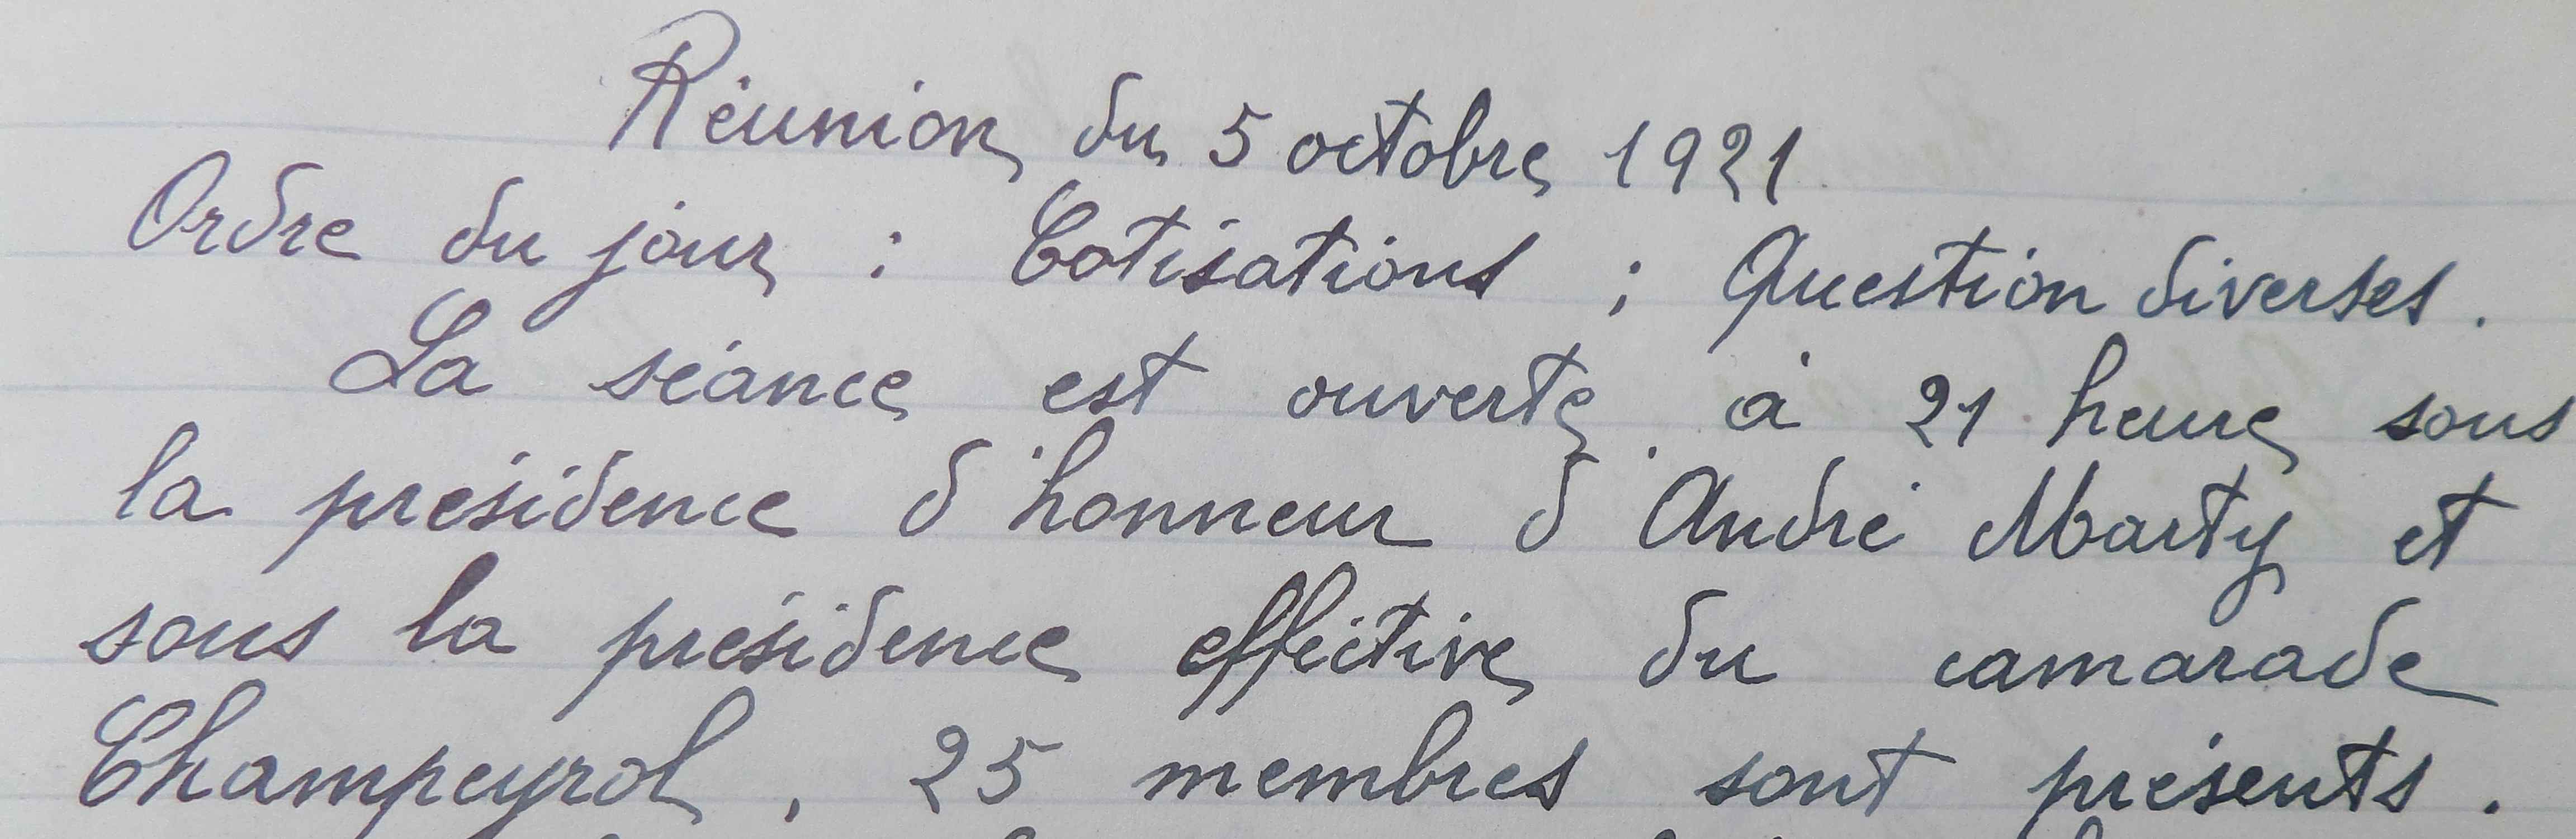 Réunion du 5 octobre 1921
Ordre du jour : Cotisations ; Question diverses.
La séance est ouverte à 21 heure sous
la présidence d'honneur d'André Marty et
sous la présidence effective du camarade
Champeyrol, 25 membres sont présents.